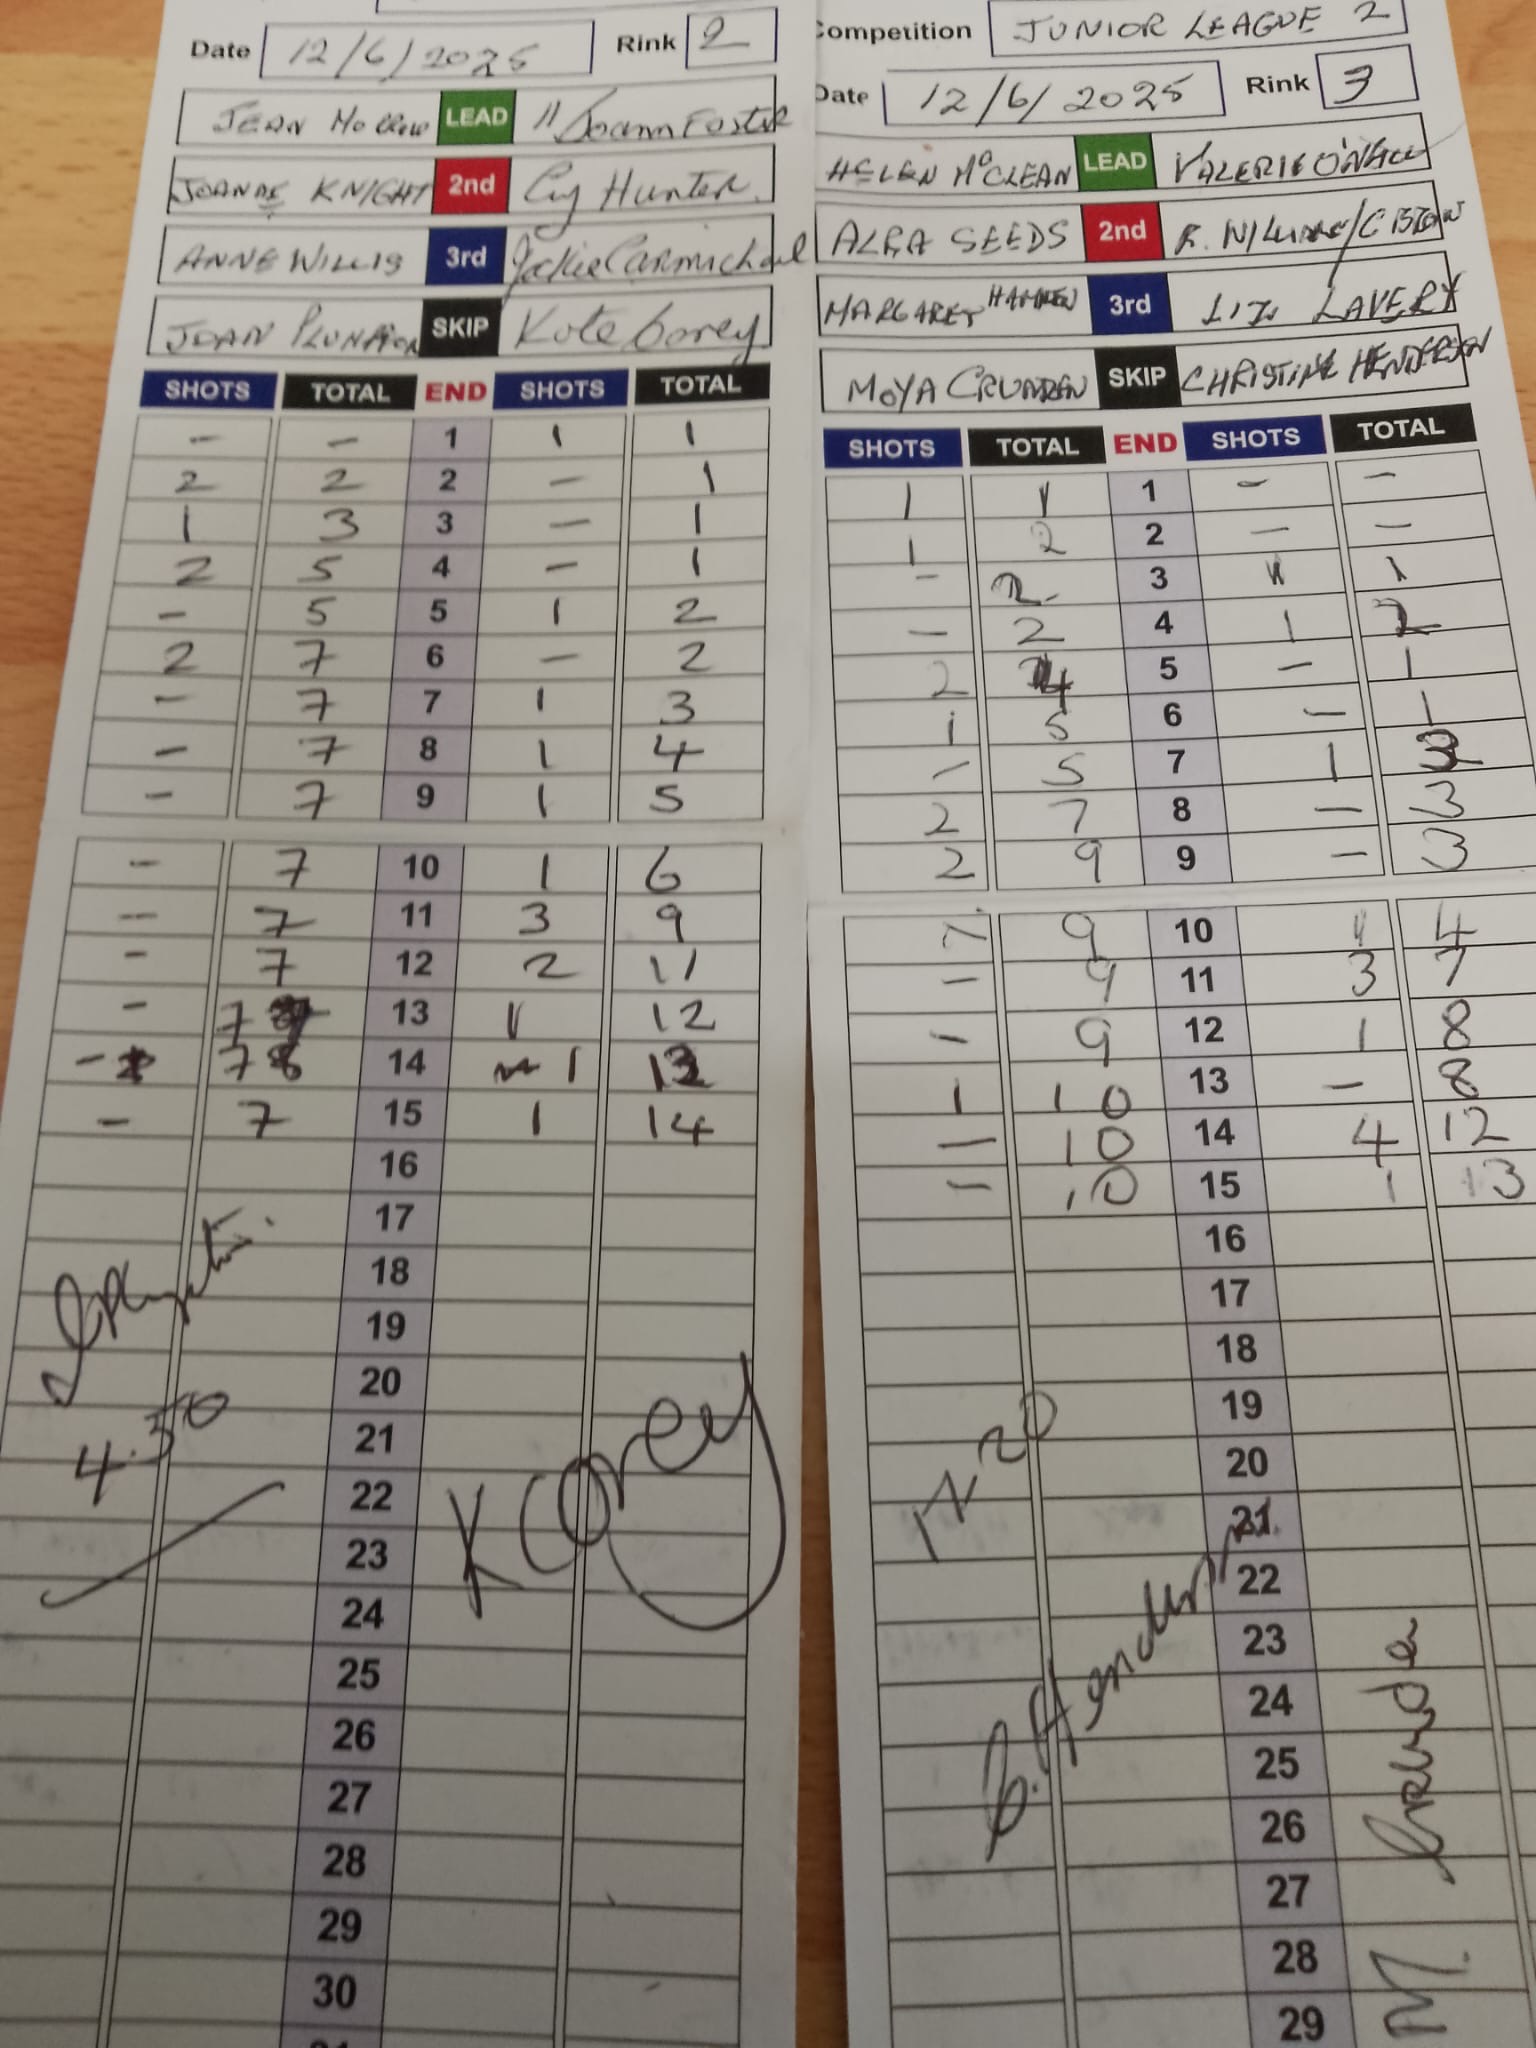 Date 12/6/2025 Rink 2
JEAN LEAD Joann Foster
JOANNE KNIGHT 2nd Hunter
ANNE WILLIS 3rd Jackie Carmichael
JOAN SKIP Kate Corey
SHOTS TOTAL END SHOTS TOTAL
- - 1 1 1
2 2 2 - 1
1 3 3 - 1
2 5 4 - 1
- 5 5 1 2
2 7 6 - 2
- 7 7 1 3
- 7 8 1 4
- 7 9 1 5
- 7 10 1 6
- 7 11 3 9
- 7 12 2 11
- 7 13 1 12
- 7 14 1 13
- 7 15 1 14
16
17
18
19
20
21
4.50
22
K Corey
23
24
25
26
27
28
29
30
Competition JUNIOR LEAGUE 2
Date 12/6/2025 Rink 3
HELEN McCLEAN LEAD VALERIE O'NEILL
ALRA SEEDS 2nd R.
MARGARET 3rd LIZ LAVERY
MOYA CRUMDEN SKIP CHRISTINE HENDERSON
SHOTS TOTAL END SHOTS TOTAL
1 1 1 - -
1 2 2 - -
- 2 3 1 1
- 2 4 1 2
2 4 5 - 1
1 5 6 - 1
- 5 7 1 3
2 7 8 - 3
2 9 9 - 3
9 10 1 4
- 9 11 3 7
- 9 12 1 8
1 10 13 - 8
- 10 14 4 12
- 10 15 1 13
16
17
18
19
20
21
22
C. Henderson
23
24
25
26
27
28
29